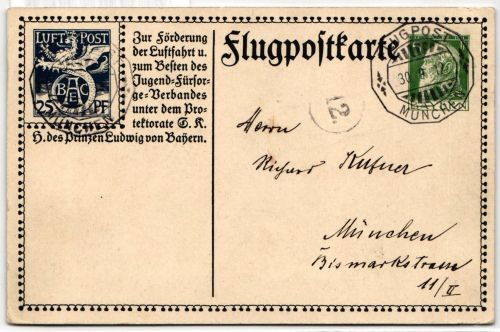 LUFT POST
BAEC
25 PF
MÜNCHEN
Zur Förderung
der Luftfahrt u.
zum Besten des
Jugend-Fürsor-
ge-Verbandes
unter dem Pro-
tektorate S. K.
H. des Prinzen Ludwig von Bayern.
Flugpostkarte
FLUGPOST
30
MÜNCHEN
12.
Herrn
Richard Kufner
München
Bismarckstrasse
11/II